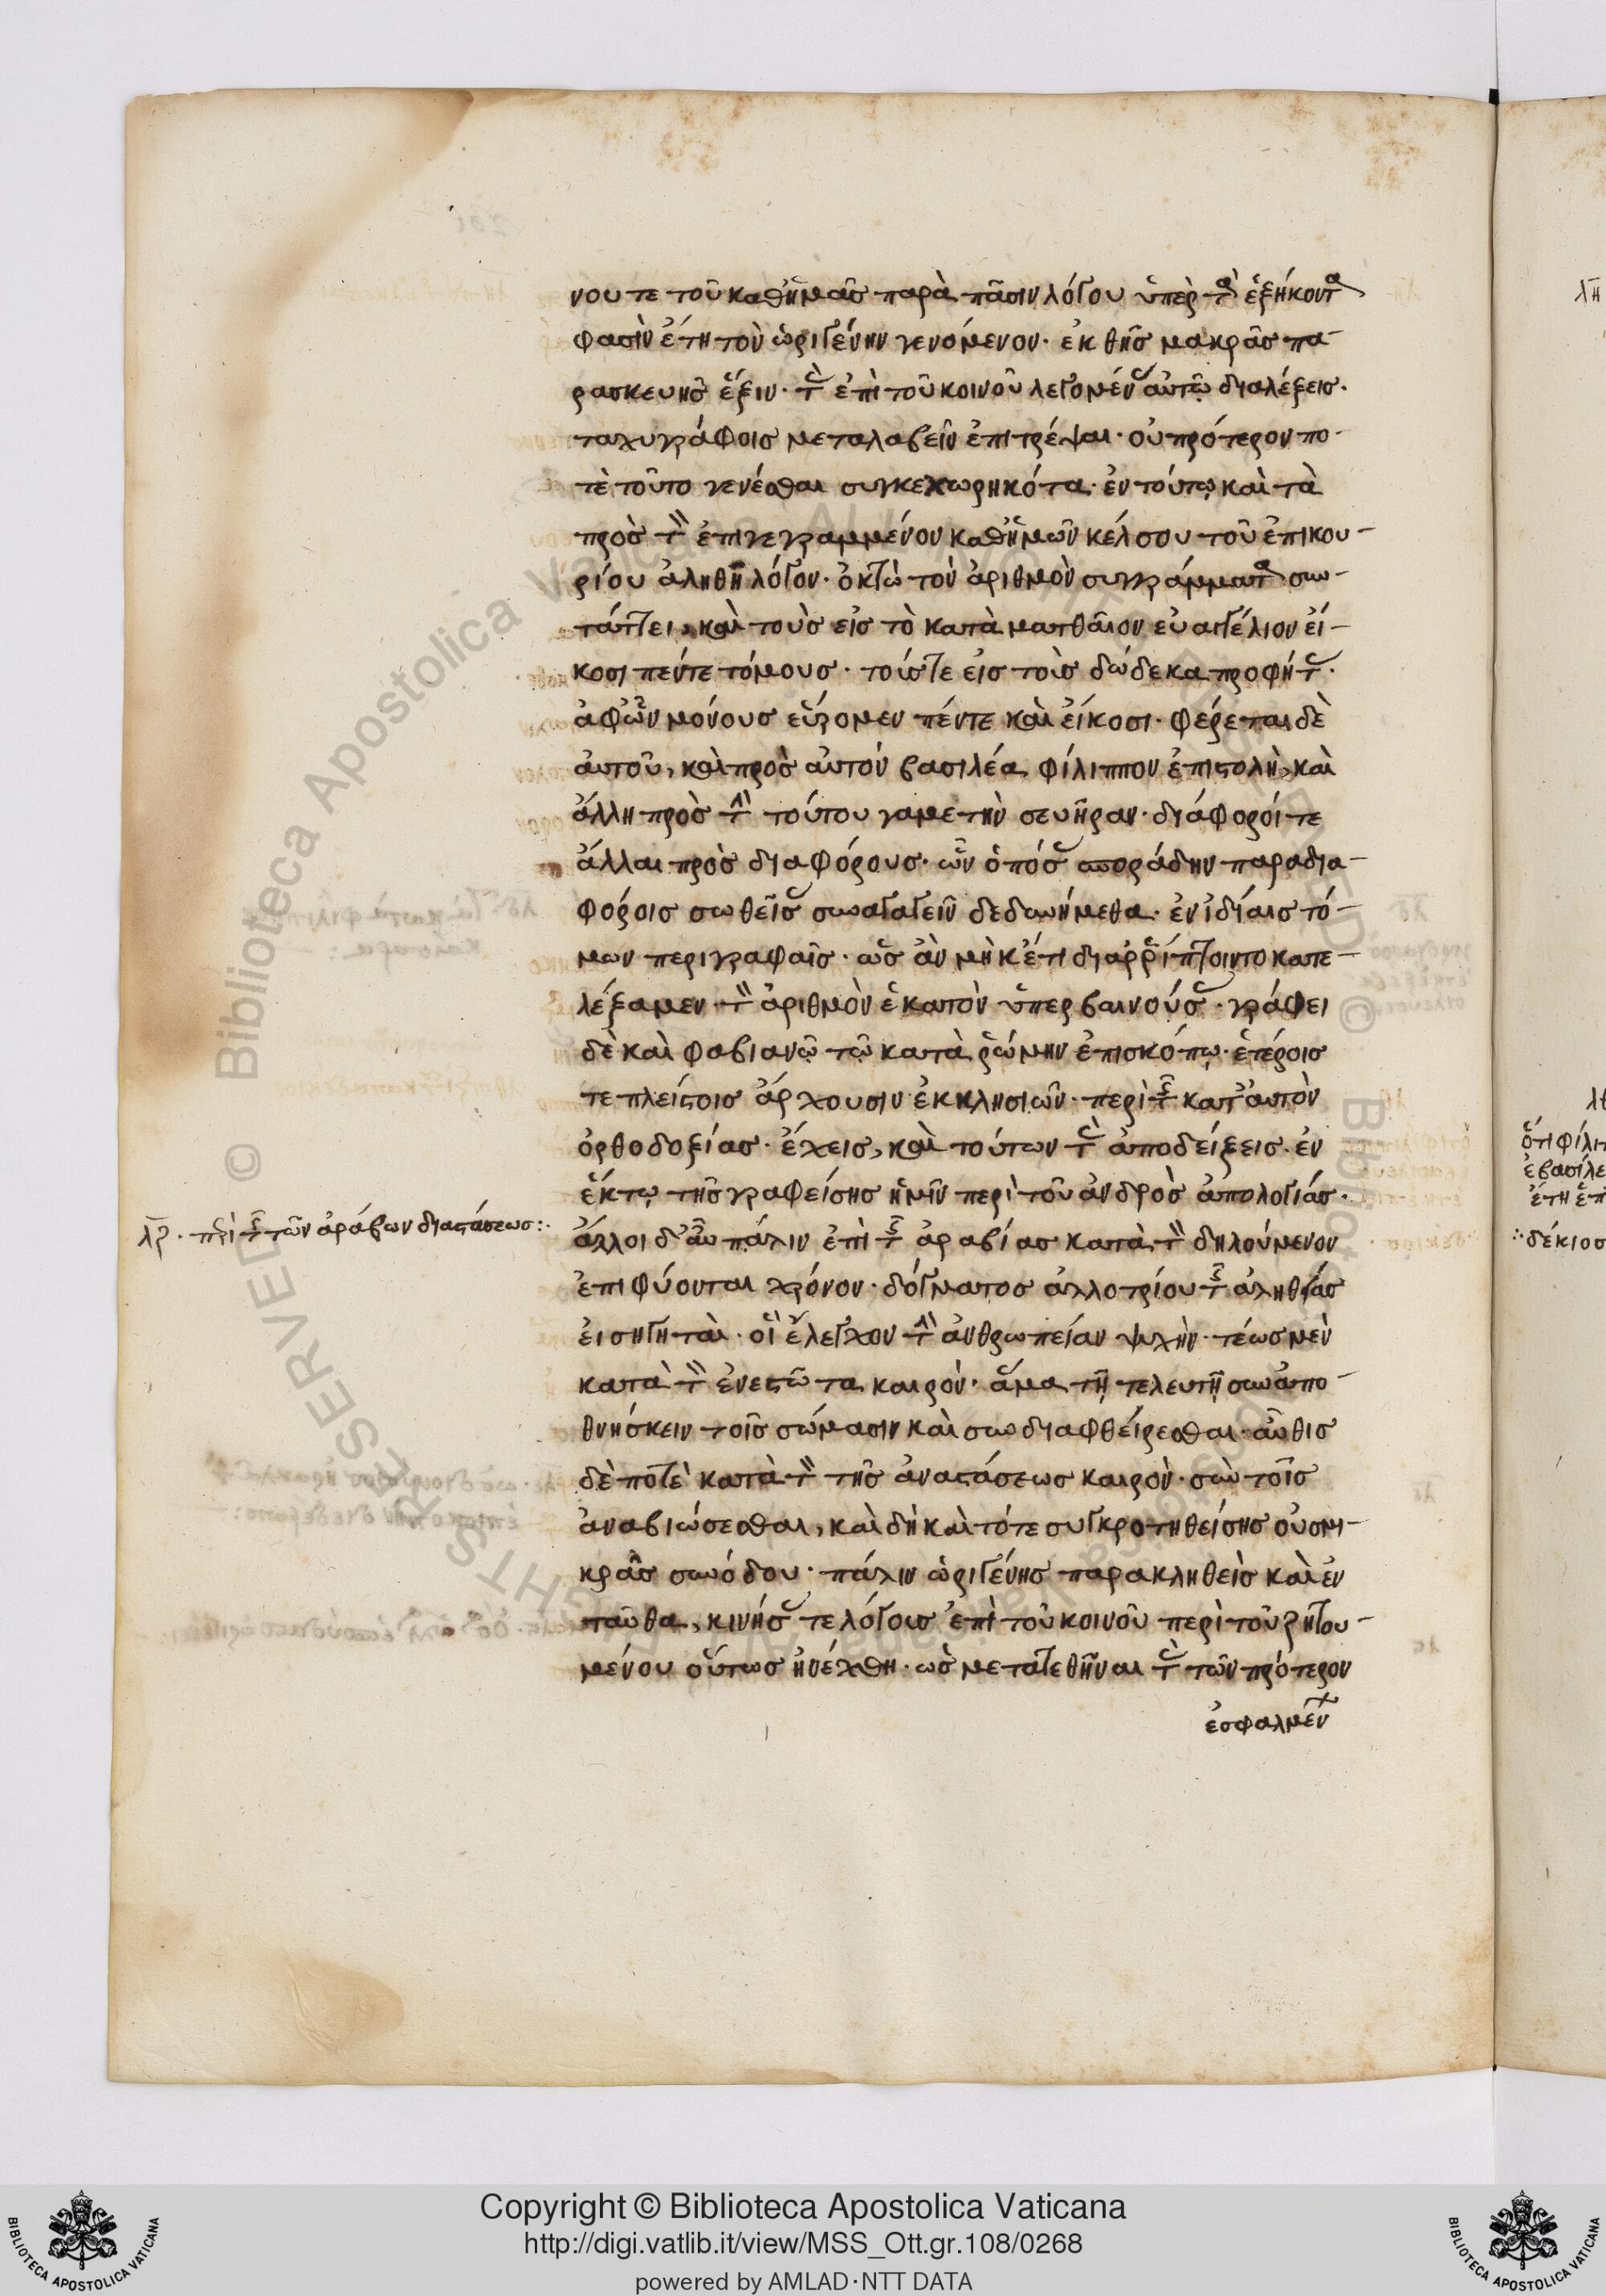 νου τε τοῦ καθ' ἡμᾶς παρὰ πᾶσιν λόγου ὑπὲρ τὰ ἑξήκοντα
φασὶν ἔτη τὸν ὠριγένην γενόμενον· ἐκ θῆς μακρᾶς πα-
ρασκευῆς ἕξιν· τὰς ἐπὶ τοῦ κοινοῦ λεγομένας αὐτῷ διαλέξεις·
ταχυγράφοις μεταλαβεῖν ἐπιτρέψαι· οὐ πρότερον πο-
τὲ τοῦτο γενέσθαι συγκεχωρηκότα· ἐν τούτῳ καὶ τὰ
πρὸς τὸν ἐπιγεγραμμένον καθ' ἡμῶν κέλσου τοῦ ἐπικου-
ρίου ἀληθῆ λόγον· ὀκτὼ τὸν ἀριθμὸν συγγράμματα συν-
τάττει, καὶ τοὺς εἰς τὸ κατὰ ματθαῖον εὐαγγέλιον εἰ-
κοσι πέντε τόμους· τούς τε εἰς τοὺς δώδεκα προφήτας·
ἀφ' ὧν μόνους εὕρομεν πέντε καὶ εἴκοσι· φέρεται δὲ
αὐτοῦ, καὶ πρὸς αὐτὸν βασιλέα φίλιππον ἐπιστολὴ, καὶ
ἄλλη πρὸς τὴν τούτου γαμετὴν σευῆραν· διάφοροί τε
ἄλλαι πρὸς διαφόρους· ὧν ὁπόσας σποράδην παρα δια-
φόροις σωθείσας συναγαγεῖν δεδυνήμεθα· ἐν ἰδίαις τό-
μων περιγραφαῖς· ὡς ἂν μὴκέτι διαρρίπτοιντο κατε-
λέξαμεν· τὸν ἀριθμὸν ἑκατὸν ὑπερβαινούσας· γράφει
δὲ καὶ φαβιανῷ τῷ κατὰ ῥώμην ἐπισκόπῳ· ἑτέροις
τε πλείστοις ἄρχουσιν ἐκκλησιῶν· περὶ τῆς κατ' αὐτὸν
ὀρθοδοξίας· ἔχεις, καὶ τούτων τὰς ἀποδείξεις· ἐν
ἕκτῳ τῆς γραφείσης ἡμῖν περὶ τοῦ ἀνδρὸς ἀπολογίας·
λζ· περὶ τῆς τῶν ἀράβων διαστάσεως:·
ἄλλοι δ' αὖ πάλιν ἐπὶ τῆς ἀραβίας κατὰ τὸν δηλούμενον
ἐπιφύονται χρόνον· δόγματος ἀλλοτρίου τῆς ἀληθείας
εἰσηγηταὶ· οἳ ἔλεγχον τὴν ἀνθρωπείαν ψυχὴν· τέως μὲν
κατὰ τὸν ἐνεστῶτα καιρὸν· ἅμα τῇ τελευτῇ συναπο-
θνήσκειν τοῖς σώμασιν καὶ συνδιαφθείρεσθαι· αὖθις
δὲ ποτὲ κατὰ τὸν τῆς ἀναστάσεως καιρὸν· σὺν τοῖς
ἀναβιώσεσθαι, καὶ δὴ καὶ τότε συγκροτηθείσης οὐ σμι-
κρᾶς συνόδου· πάλιν ὠριγένης παρακληθεὶς καὶ ἐν
ταῦθα, κινήσας τε λόγους ἐπὶ τοῦ κοινοῦ περὶ τοῦ ζητου-
μένου οὕτως ἠνέχθη· ὡς μετατεθῆναι τὰς τῶν πρότερον
ἐσφαλμένων
λη
λθ
ὅτι φίλιπ
ἐβασίλε
ἔτη ἑπ
∴ δέκιοσ
Copyright © Biblioteca Apostolica Vaticana
http://digi.vatlib.it/view/MSS_Ott.gr.108/0268
powered by AMLAD·NTT DATA